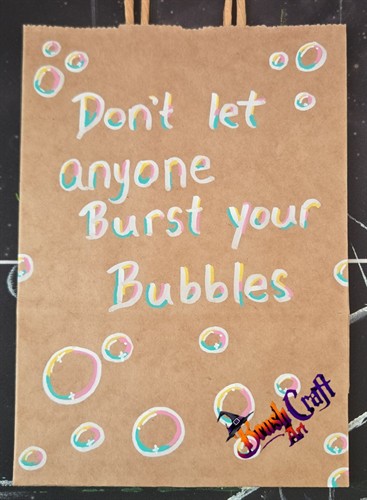 Don't let
anyone
Burst your
Bubbles
BrushCraft
Art